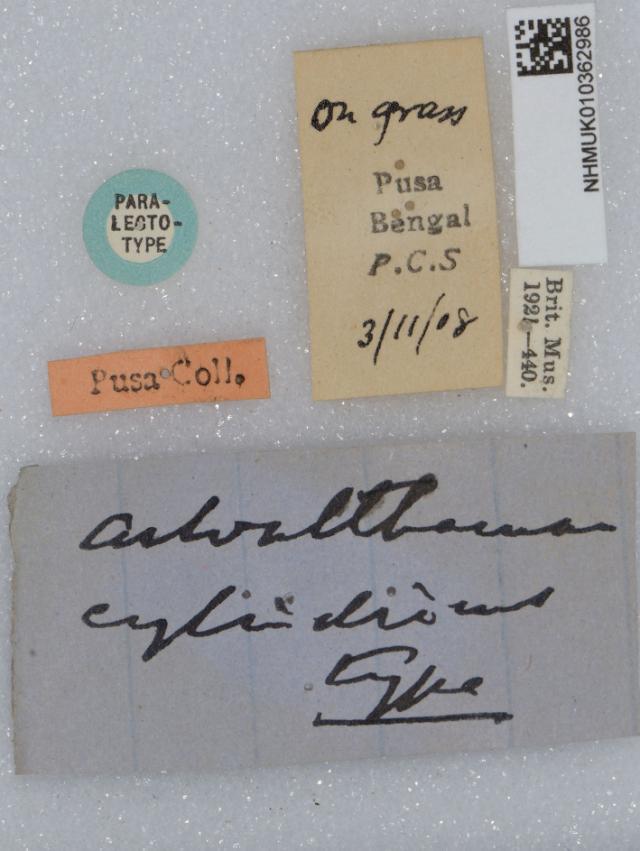 On grass
Pusa
Bengal
P.C.S
3/11/08
NHMUK010362986
PARA-
LECTO-
TYPE
Brit. Mus.
1921—440.
Pusa Coll.
Aswatthamanus
cylindricus
Type